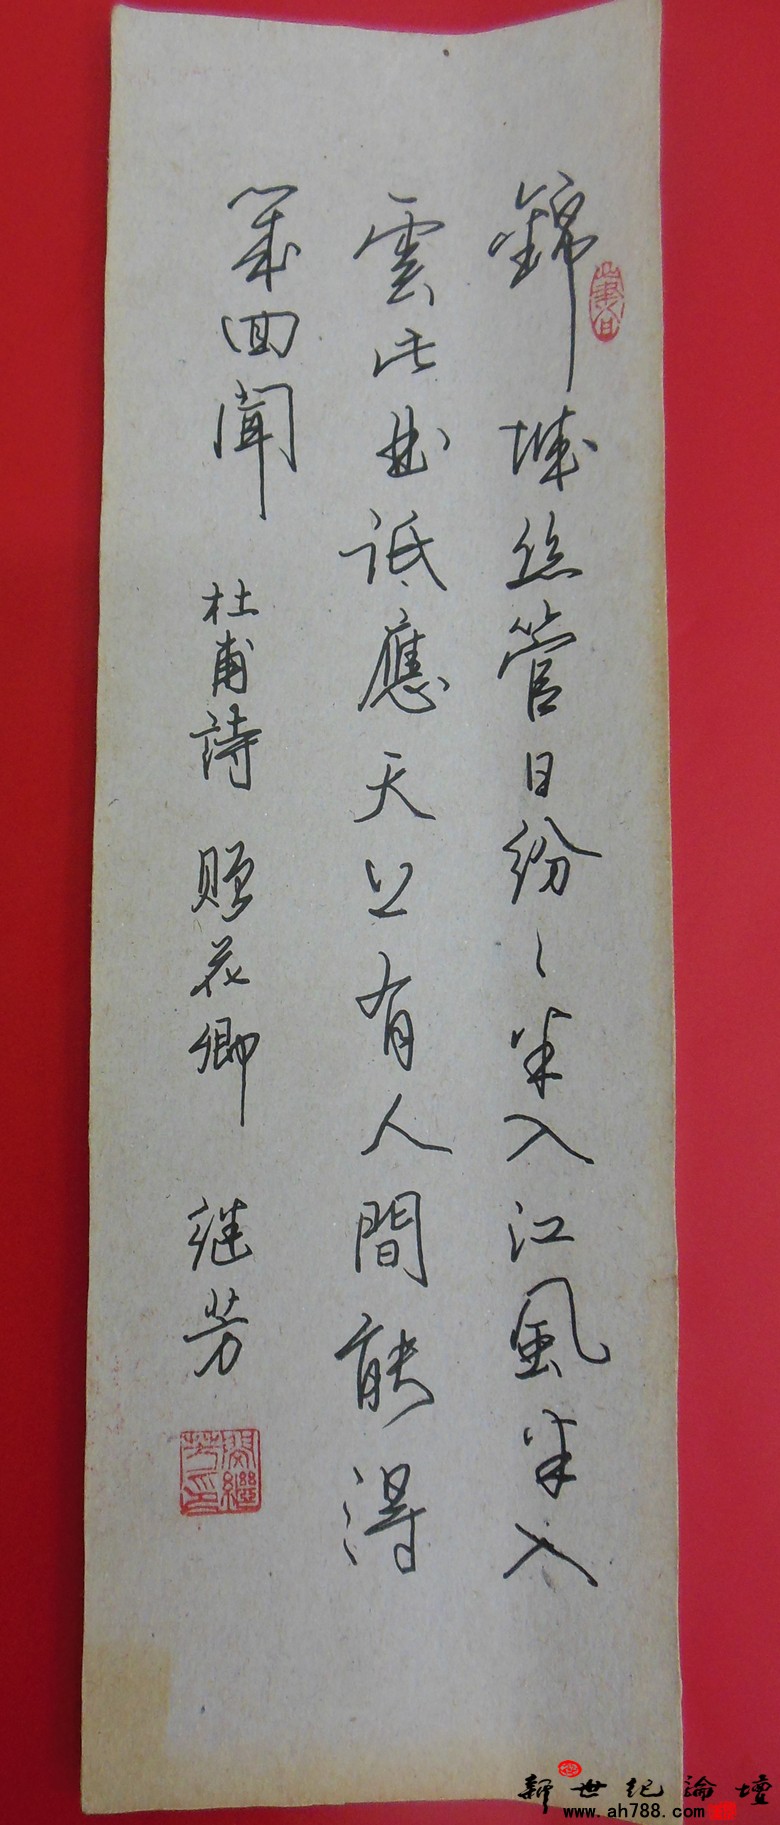 錦城絲管日紛〻半入江風半入
雲此曲祗應天上有人間能得
幾回聞 杜甫詩 贈花卿 继芳
新世紀論壇
www.ah788.com